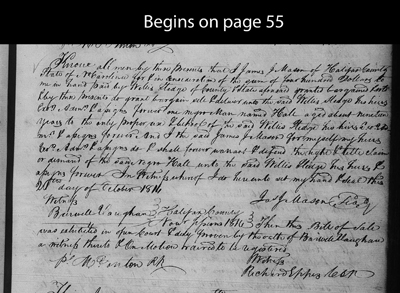 Begins on page 55
Know all men by these presents that I James J Mason of Halifax County
State of N Carolina for & in consideration of the sum of four hundred Dollars to
me in hand paid by Willie Sledge of County & State aforesaid granted bargained sold
& by these presents do grant bargain sell & deliver unto the said Willie Sledge his heirs
Exrs Admrs & assigns forever one negro Man named Hall aged about nineteen
years to the only proper use & behoof of the said Willie Sledge his heirs Exrs Ad
mrs & assigns forever. And I the said James J Mason for myself my heirs
Exrs Admrs & assigns do & shall forever warrant & defend the right & title claim
or demand of the said negro Hall unto the said Willie Sledge his heirs &
assigns forever In Witness whereof I do hereunto set my hand & seal this
day of October 1816
Witness Jas J Mason
Burwell Vaughan Halifax County
Novr 1816 Then this Bill of Sale
was exhibited in open Court & duly proven by the oath of Burwell Vaughan
a witness thereto & On Motion ordered to be registered
Witness
Richard Eppes